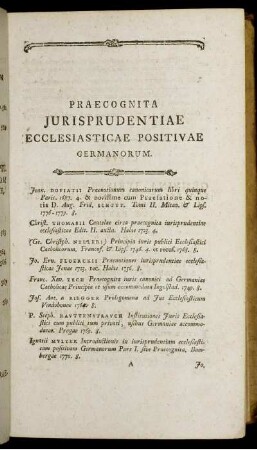 PRAECOGNITA
JURISPRUDENTIAE
ECCLESIASTICAE POSITIVAE
GERMANORUM.
Joan. DOVIATII Praenotionum canonicarum libri quinque
Paris. 1687. 4. & novissime cum Praefatione & no-
tis D. Aug. Frid. SCHOTT. Tomi II. Mitav. & Lips.
1776-1779. 8.
Christ. THOMASII Cautelae circa praecognita iurisprudentiae
ecclesiasticae Edit. II. aucta. Halae 1723. 4.
(Ge. Christoph. NELLER) Principia iuris publici Ecclesiastici
Catholicorum, Francof. & Lips. 1746. 4. et recus. 1768. 8.
Jo. Ern. FLOERCKII Praenotiones iurisprudentiae ecclesia-
sticae Jenae 1723. rec. Halae 1756. 8.
Franc. Xav. ZECH Praecognita iuris canonici ad Germaniae
Catholicae Principia et usum accommodata Ingolstad. 1749. 8.
Jos. Ant. a RIEGGER Prolegomena ad Jus Ecclesiasticum
Vindobonae 8.
P. Steph. RAUTTENSTRAUCH Institutiones Juris Ecclesia-
stici cum publici tum privati, usibus Germaniae accommo-
datae. Pragae 1769. 8.
Ignatii MÜLLER Introductionis in iurisprudentiam ecclesiasti-
cam positivam Germanorum Pars I. sive Praecognita. Bam-
bergae 1770. 8.
A Jo.